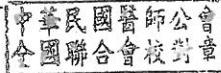 中華民國醫師公會
全國聯合會校對章